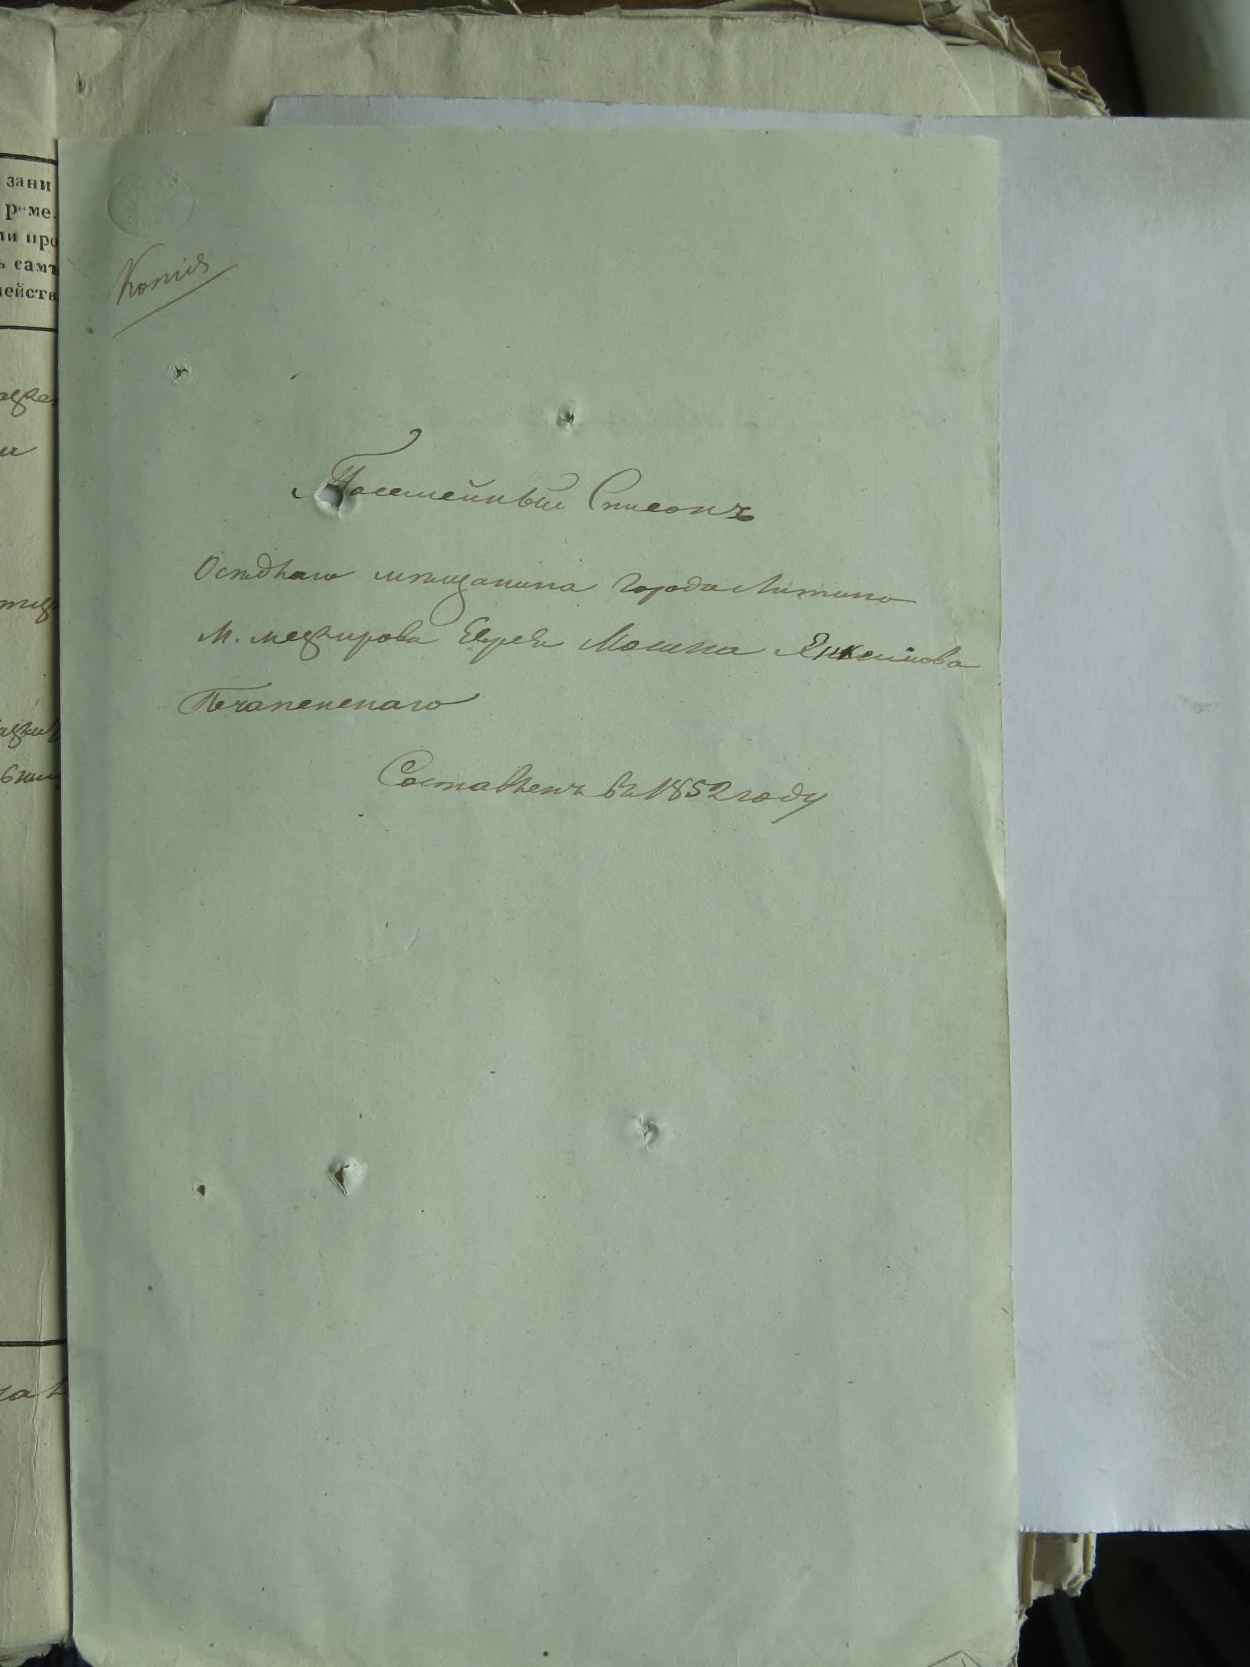 зани
реме
ли про
ъ самъ
мейств
Копія
Посемейный Списокъ
Осѣдлаго мѣщанина города Литина
М. межирова Еврея Мошка Янкелиова
Печапенскаго
Составленъ въ 1852 году